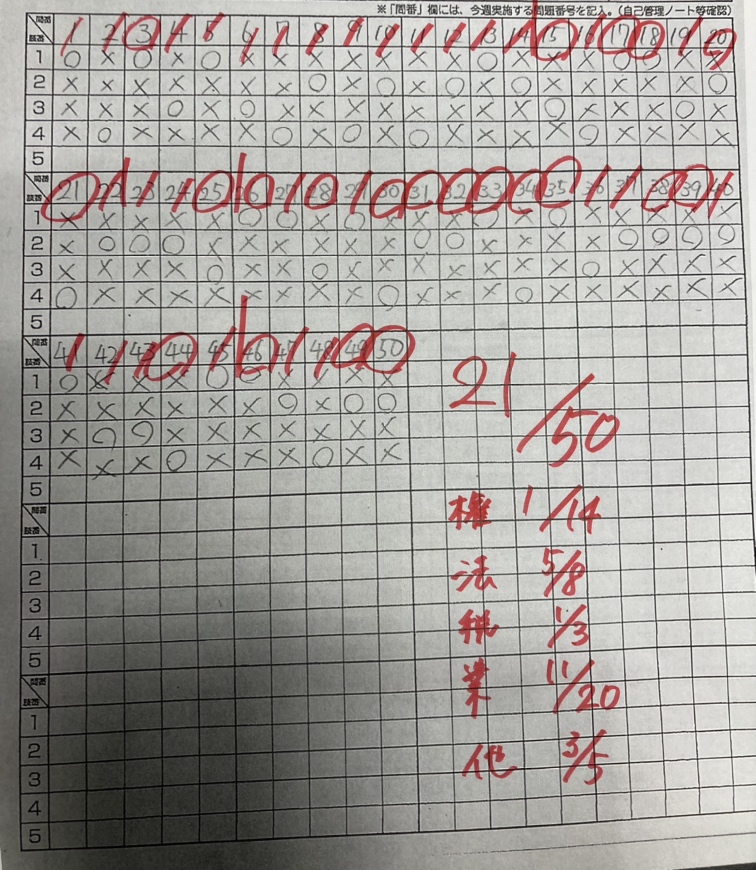 ※「問番」欄には、今週実施する問題番号を記入。(自己管理ノート等確認)
問番 肢番 1 2 3 4 5 6 7 8 9 10 11 12 13 14 15 16 17 18 19 20
1 ○ × ○ × ○ × × × × × × × ○ × × × ○ ○ × ×
2 × × × × × × × ○ × ○ × ○ × ○ × × × × × ○
3 × × × ○ × ○ × × × × × × × × ○ × × × ○ ×
4 × ○ × × × × ○ × ○ × ○ × × × × ○ × × × ×
5
問番 肢番 21 22 23 24 25 26 27 28 29 30 31 32 33 34 35 36 37 38 39 40
1 × × × × × ○ ○ × ○ × × × ○ × ○ × × × × ×
2 × ○ ○ ○ × × × × × × ○ ○ × × × × ○ ○ ○ ○
3 × × × × ○ × × ○ × × × × × × × ○ × × × ×
4 ○ × × × × × × × × ○ × × × ○ × × × × × ×
5
問番 肢番 41 42 43 44 45 46 47 48 49 50
1 ○ × × × ○ ○ × × × ×
2 × × × × × × ○ × ○ ○
3 × ○ ○ × × × × × × ×
4 × × × ○ × × × ○ × ×
5
21/50
問番 肢番
権 1/14
1
法 5/8
2
3
税 1/3
4
5
問番 肢番
業 11/20
1
2
他 3/5
3
4
5